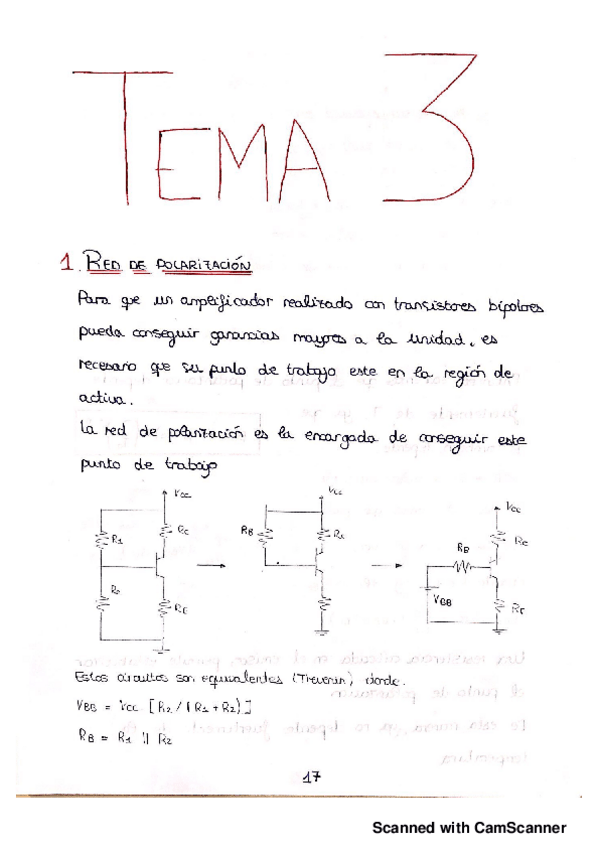 TEMA 3
1. RED DE POLARIZACIÓN
Para qe un amplificador realizado con transistores bipolares
pueda conseguir ganancias mayores a la unidad, es
necesario que su punto de trabajo este en la región de
activa.
La red de polarización es la encargada de conseguir este
punto de trabajo
Vcc
Vcc
Vcc
R1
RC
RB
RC
RC
RB
R2
RE
VBB
RE
Estos circuitos son equivalentes (Thevenin) donde.
VBB = Vcc [R2 / (R1 + R2)]
RB = R1 || R2
17
Scanned with CamScanner